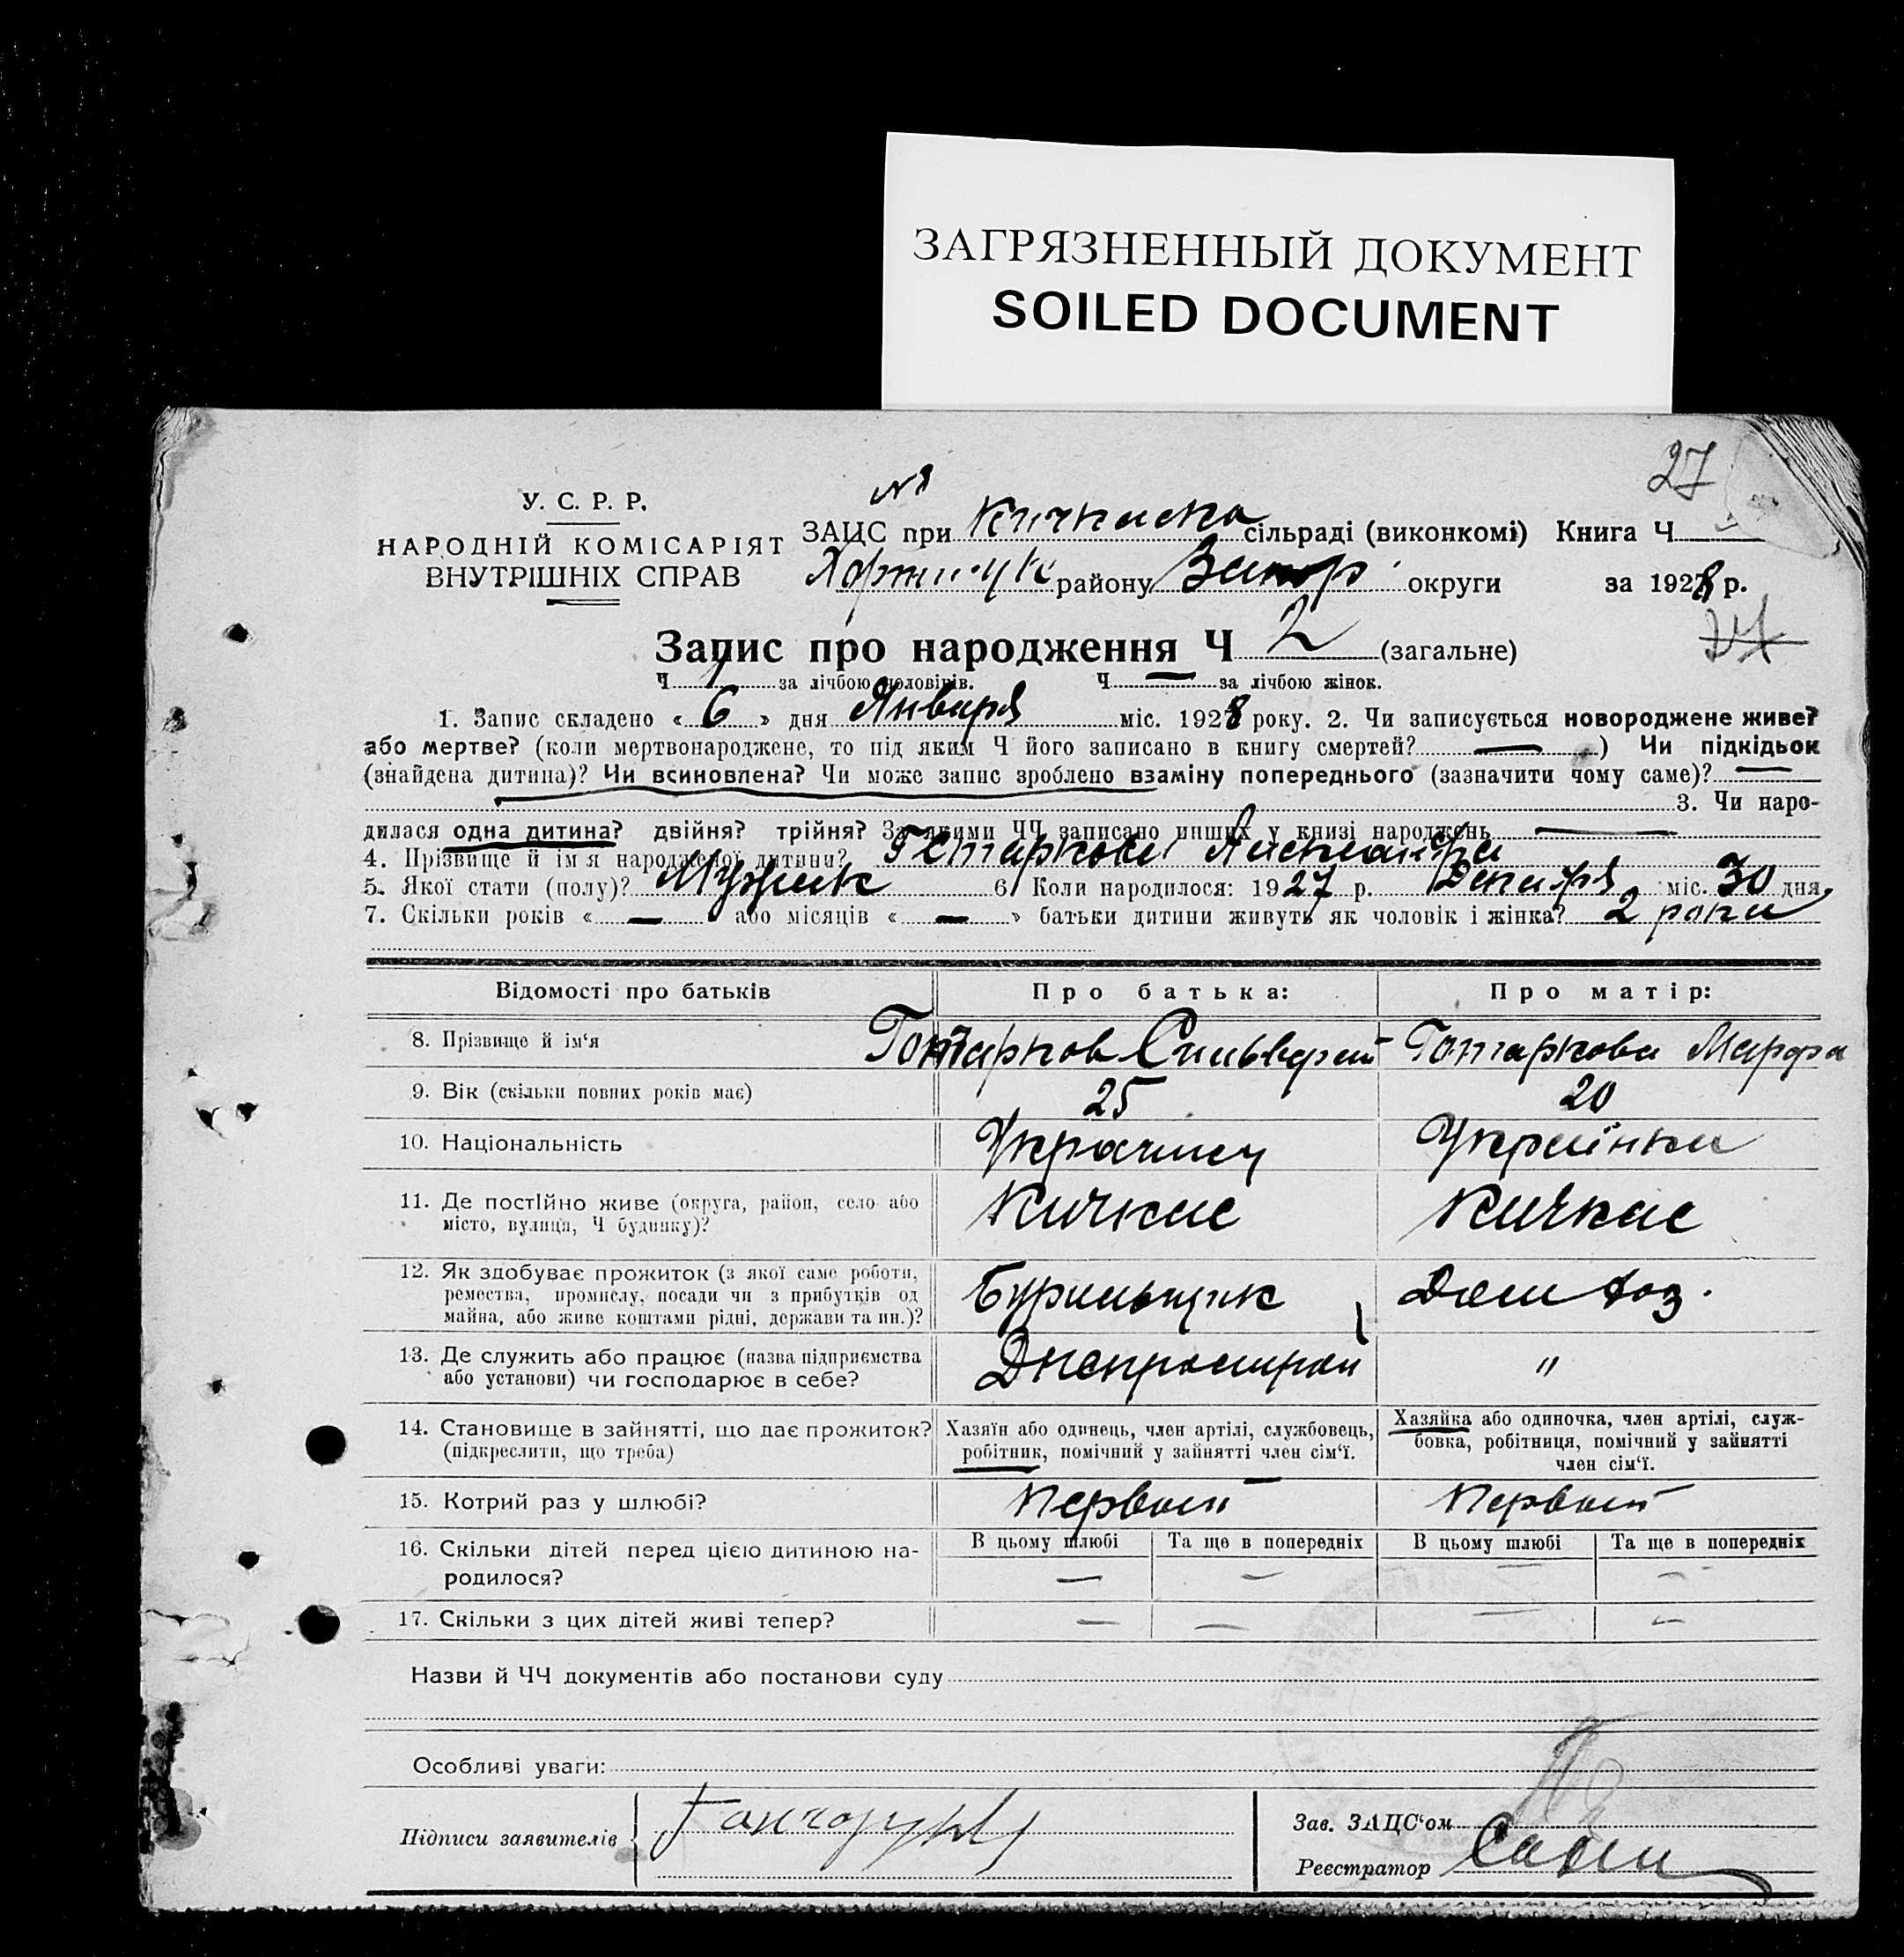 ЗАГРЯЗНЕННЫЙ ДОКУМЕНТ
SOILED DOCUMENT
27
У. С. Р. Р.
НАРОДНІЙ КОМІСАРІЯТ
ВНУТРІШНІХ СПРАВ
ЗАЦС при Кичкаска сільраді (виконкомі) Книга Ч
району Запор. округи за 1928 р.
Запис про народження Ч 2 (загальне)
Ч 1 за лічбою чоловіків. Ч — за лічбою жінок.
1. Запис складено « 6 » дня Января міс. 1928 року. 2. Чи записується новороджене живе?
або мертве? (коли мертвонароджене, то під яким Ч його записано в книгу смертей? — ) Чи підкідьок
(знайдена дитина)? Чи всиновлена? Чи може запис зроблено взаміну попереднього (зазначити чому саме)? —
3. Чи наро-
дилася одна дитина? двійня? трійня? За якими ЧЧ записано инших у книзі народжень —
4. Прізвище й ім'я народженої дитини?
5. Якої стати (полу)? Мужск 6. Коли народилося: 1927 р. Декабря міс. 30 дня
7. Скільки років « — » або місяців « — » батьки дитини живуть як чоловік і жінка? 2 роки
Відомості про батьків Про батька: Про матір:
8. Прізвище й ім'я Марфа
9. Вік (скільки повних років має) 25 20
10. Національність Украинец Українка
11. Де постійно живе (округа, район, село або Кичкас Кичкас
місто, вулиця, Ч будинку)?
12. Як здобуває прожиток (з якої саме роботи, Бурильщик Дом хоз.
ремества, промислу, посади чи з прибутків од
майна, або живе коштами рідні, держави та ин.)?
13. Де служить або працює (назва підприємства Днепрострой "
або установи) чи господарює в себе?
14. Становище в зайнятті, що дає прожиток? Хазяїн або одинець, член артілі, службовець, Хазяйка або одиночка, член артілі, служ-
(підкреслити, що треба) робітник, помічний у зайнятті член сім'ї. бовка, робітниця, помічний у зайнятті
член сім'ї.
15. Котрий раз у шлюбі? Первый Первый
16. Скільки дітей перед цією дитиною на- В цьому шлюбі Та ще в попередніх В цьому шлюбі Та ще в попередніх
родилося? — — — —
17. Скільки з цих дітей живі тепер? — — — —
Назви й ЧЧ документів або постанови суду
Особливі уваги:
Підписи заявителів
Зав. ЗАЦС'ом
Реєстратор